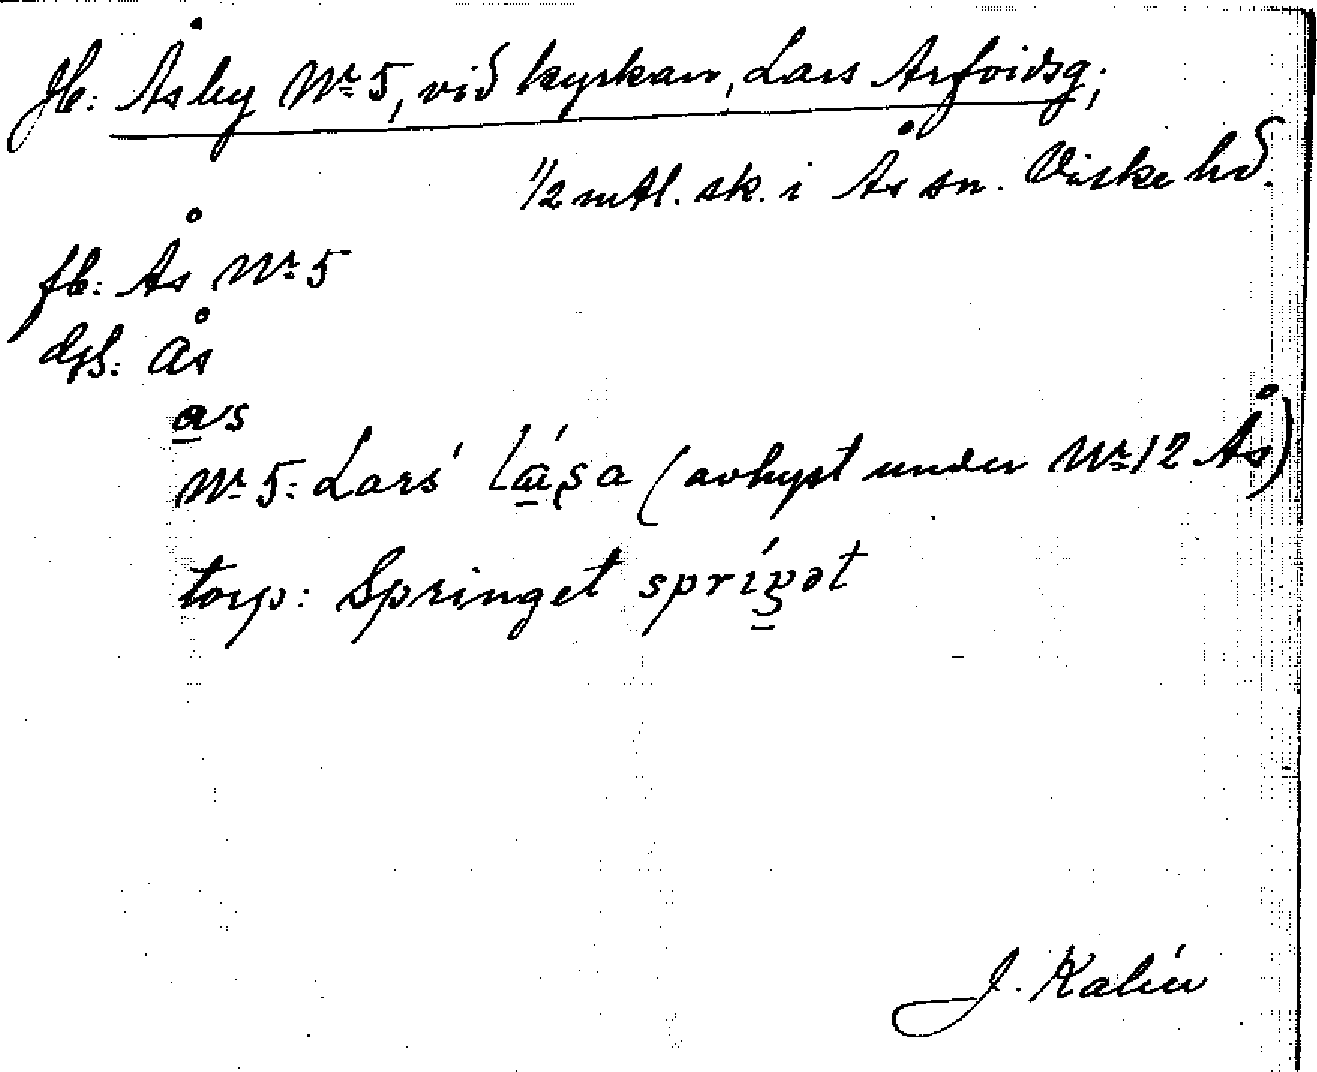 Jb: Åsby Nr 5, vid kyrkan, Lars Arfvidsg;
1/2 mtl. sk. i Ås sn. Viske hd.
fb: Ås Nr 5
dgl: Ås
as
Nr 5: Lars' (avhyst under Nr 12 Ås)
torp: Springet
J. Kalén